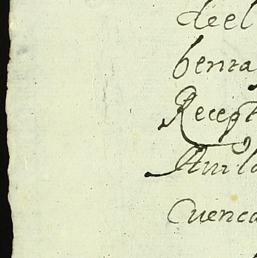 deel
benza
Recept
Cuenca